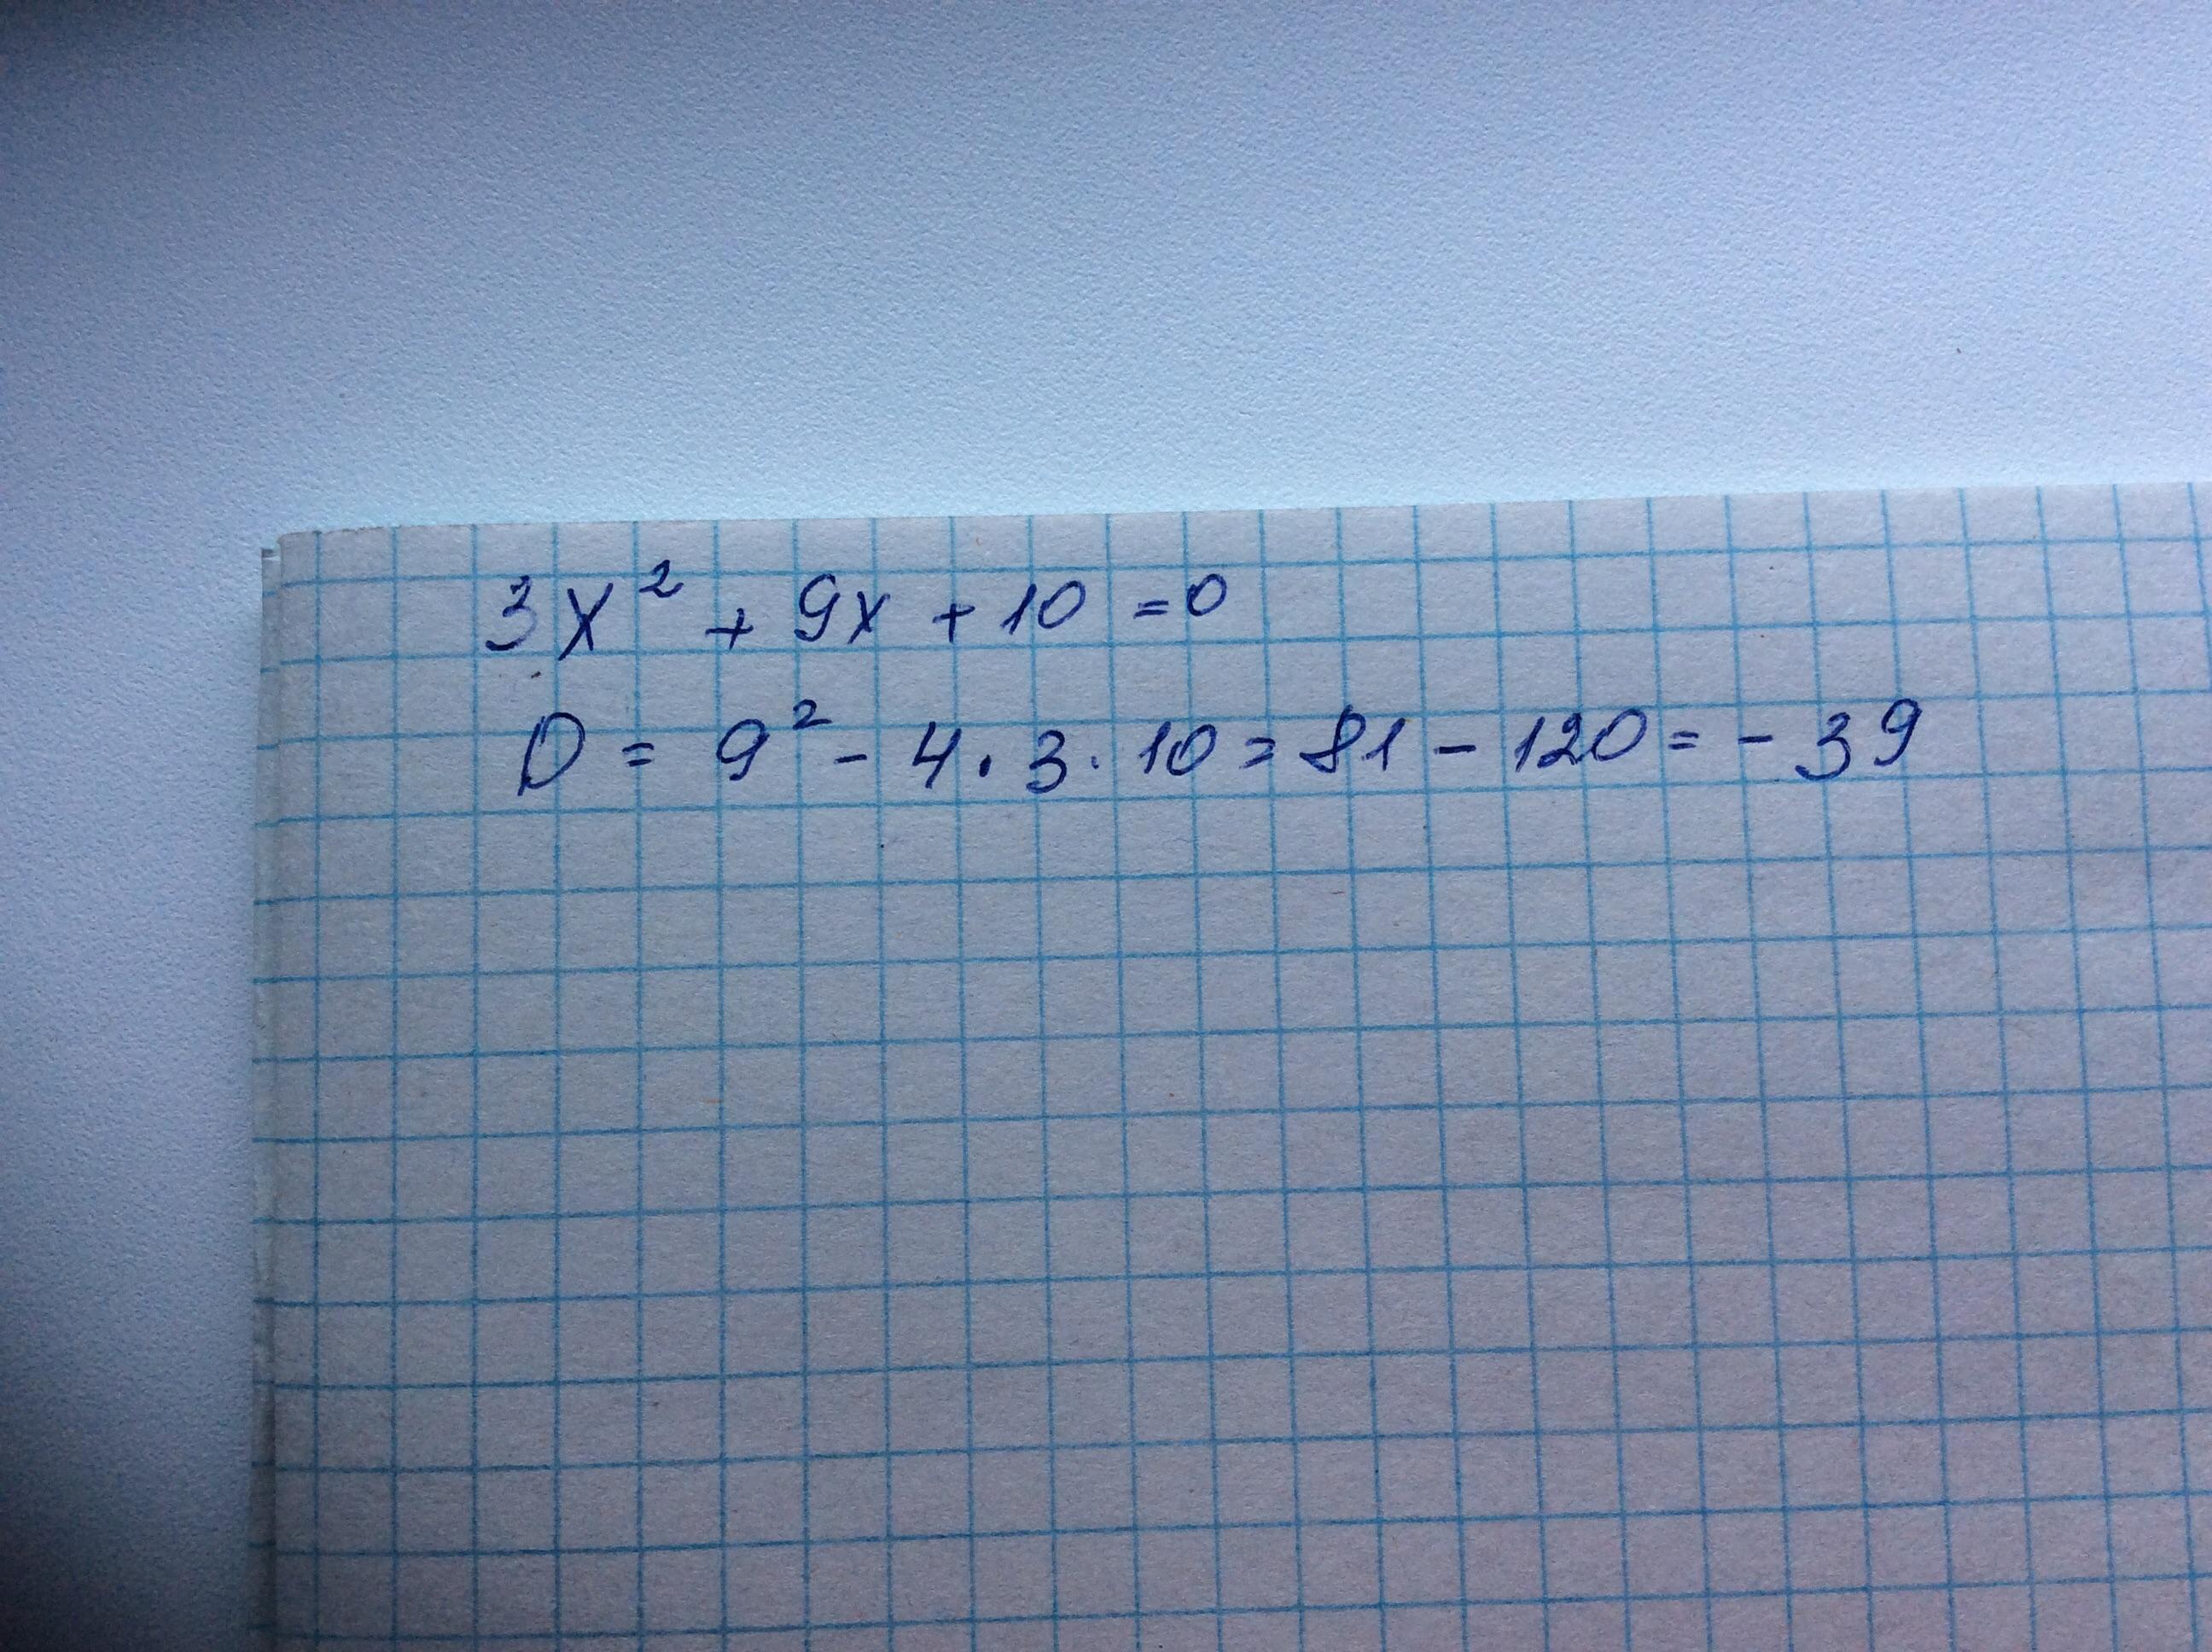 3x² + 9x + 10 = 0
D = 9² - 4 · 3 · 10 = 81 - 120 = - 39